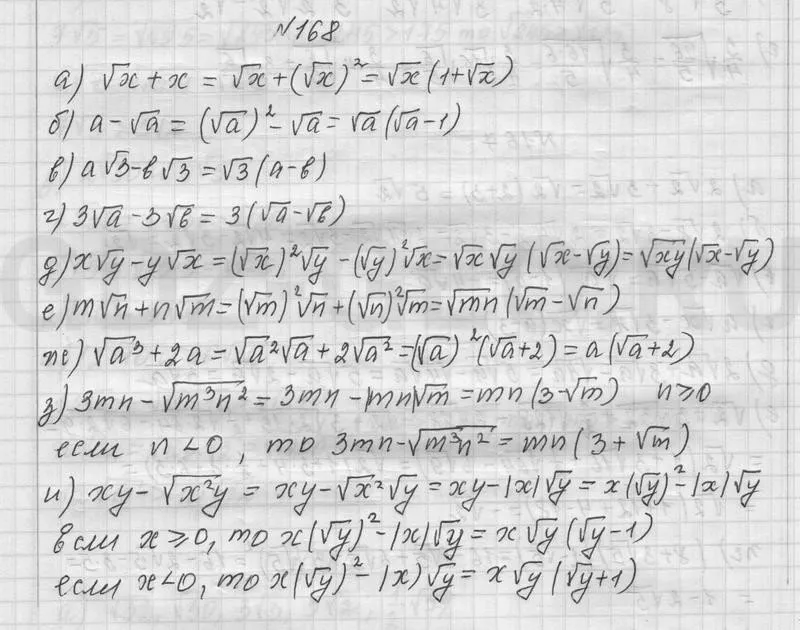 №168
а) √x + x = √x + (√x)² = √x (1+√x)
б) a - √a = (√a)² - √a = √a (√a - 1)
в) a√3 - в√3 = √3 (a - в)
г) 3√a - 3√в = 3 (√a - √в)
д) x√y - y√x = (√x)²√y - (√y)²√x = √x√y (√x - √y) = √xy (√x - √y)
е) m√n + n√m = (√m)²√n + (√n)²√m = √mn (√m - √n)
ж) √a³ + 2a = √a²√a + 2√a² = (√a)² (√a + 2) = a (√a + 2)
з) 3mn - √m³n² = 3mn - |mn|√m = mn (3 - √m) n ≥ 0
если n < 0, то 3mn - √m³n² = mn (3 + √m)
и) xy - √x²y = xy - √x² √y = xy - |x|√y = x(√y)² - |x|√y
если x ≥ 0, то x(√y)² - |x|√y = x√y (√y - 1)
если x < 0, то x(√y)² - |x)√y = x√y (√y + 1)